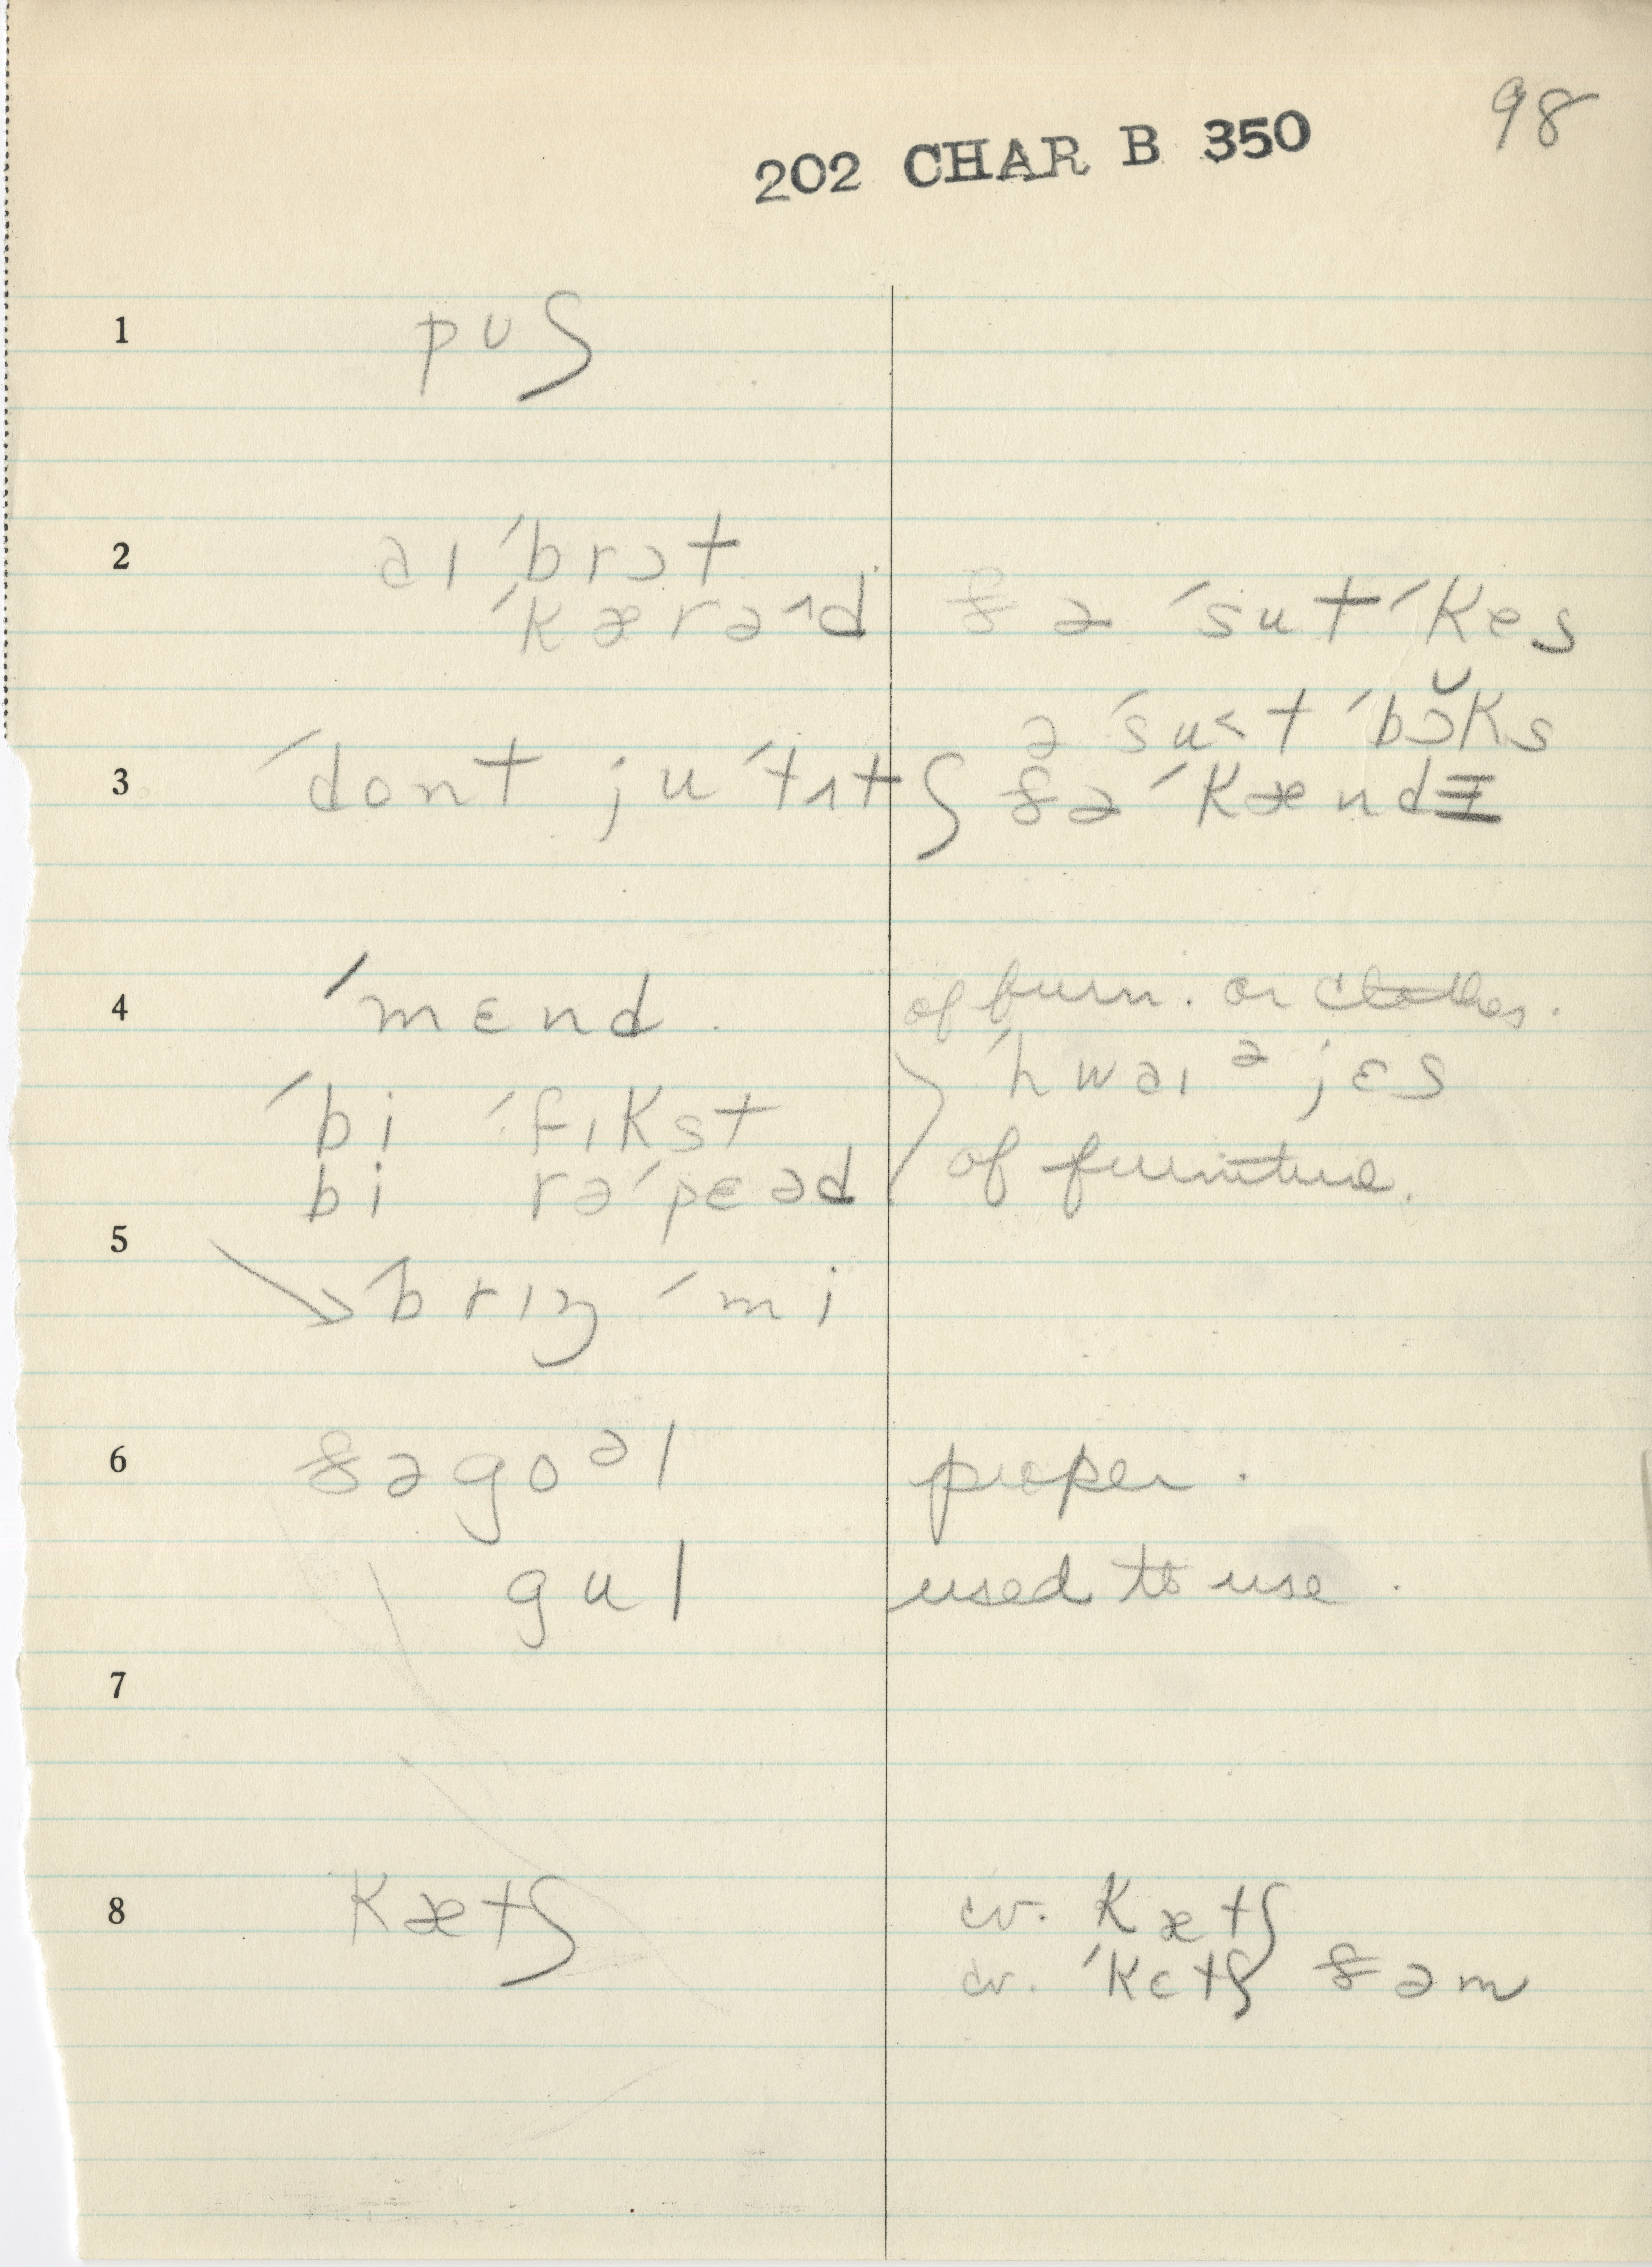 98
202 CHAR B 350
1 puʃ
2 aɪ ˈbrɔt
ˈkærəɪd ðə ˈsutˈkes
ə ˈsu<t ˈbɔ̆ks
3 ˈdont ju ˈtʌtʃ ðə ˈkændɪ
4 ˈmɛnd. of furn. or clothes.
ˈhwaɪ ə jɛs
ˈbi ˈfɪkst
bi rəˈpɛəd of furniture.
5
ˈbrɪŋ ˈmi
6 ðə goəl proper.
gul used to use.
7
8 kætʃ cv. kætʃ
cv. ˈkɛtʃ ðəm